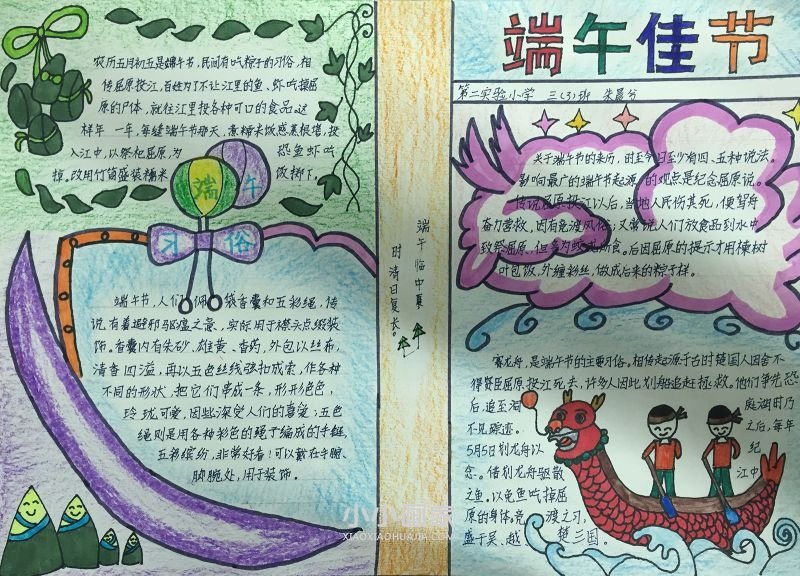 端午佳节
第二实验小学 三(3)班 朱晨兮
农历五月初五是端午节,民间有吃粽子的习俗,相
传屈原投江,百姓为了不让江里的鱼、虾吃掉屈
原的尸体,就往江里投各种可口的食品。这
样年一年,每缝端午节那天,煮糯米饭或蒸根粑,投
入江中,以祭祀屈原,为 恐鱼虾吃
掉,改用竹筒盛装糯米 饭掷下,
端午
习俗
端午节,人们 佩 袋香囊和五彩绳,传
说有着避邪驱瘟之意,实际用于襟头点缀装
饰。香囊内有朱砂、雄黄、香药,外包以丝布,
清香四溢,再以五色丝线弦扣成索,作各种
不同的形状,把它们串成一条,形形色色,
玲珑可爱,因此深受人们的喜爱;五色
绳则是用各种彩色的绳子编成的手链,
五彩缤纷,非常好看!可以戴在手腕、
脚腕处,用于装饰。
端午临中夏
时清日复长。
关于端午节的来历,时至今日至少有四、五种说法。
影响最广的端午节起源的观点是纪念屈原说。
传说屈原投江以后,当地人民伤其死,便驾舟
奋力营救,因有竞渡风俗;又常说人们放食品到水中
致祭屈原,但多为蛟龙所食。后因屈原的提示才用楝树
叶包饭,外缠彩丝,做成后来的粽子样。
赛龙舟,是端午节的主要习俗。相传起源于古时楚国人因舍不
得贤臣屈原投江死去,许多人因此划船追赶拯救。他们争先恐
后,追至洞 庭湖时乃
不见踪迹。 之后,每年
5月5日划龙舟以 纪
念。借划龙舟驱散 江中
之鱼,以免鱼吃掉屈
原的身体。竞 渡之习,
盛于吴、越、 楚三国。
小小画家
XIAOXIAOHUAJIA.COM